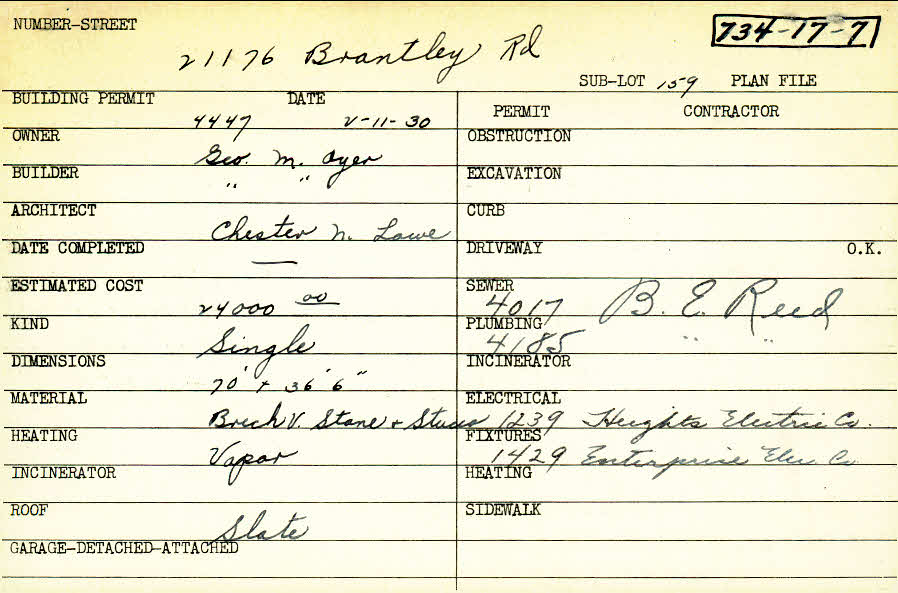 NUMBER-STREET
734-17-7
21176 Brantley Rd
SUB-LOT 159 PLAN FILE
BUILDING PERMIT DATE
4447 2-11-30
PERMIT CONTRACTOR
OWNER
Geo. M. Oyer
OBSTRUCTION
BUILDER
" "
EXCAVATION
ARCHITECT
Chester N. Lowe
CURB
DATE COMPLETED
—
DRIVEWAY O.K.
ESTIMATED COST
24000 00
SEWER
4017 B. E. Reed
KIND
Single
PLUMBING
4185 " "
DIMENSIONS
70' + 36' 6"
INCINERATOR
MATERIAL
Brick V. Stone + Stucco
ELECTRICAL
1239 Heights Electric Co.
HEATING
Vapor
FIXTURES
1429 Enterprise Elec. Co
INCINERATOR
HEATING
ROOF
Slate
SIDEWALK
GARAGE-DETACHED-ATTACHED